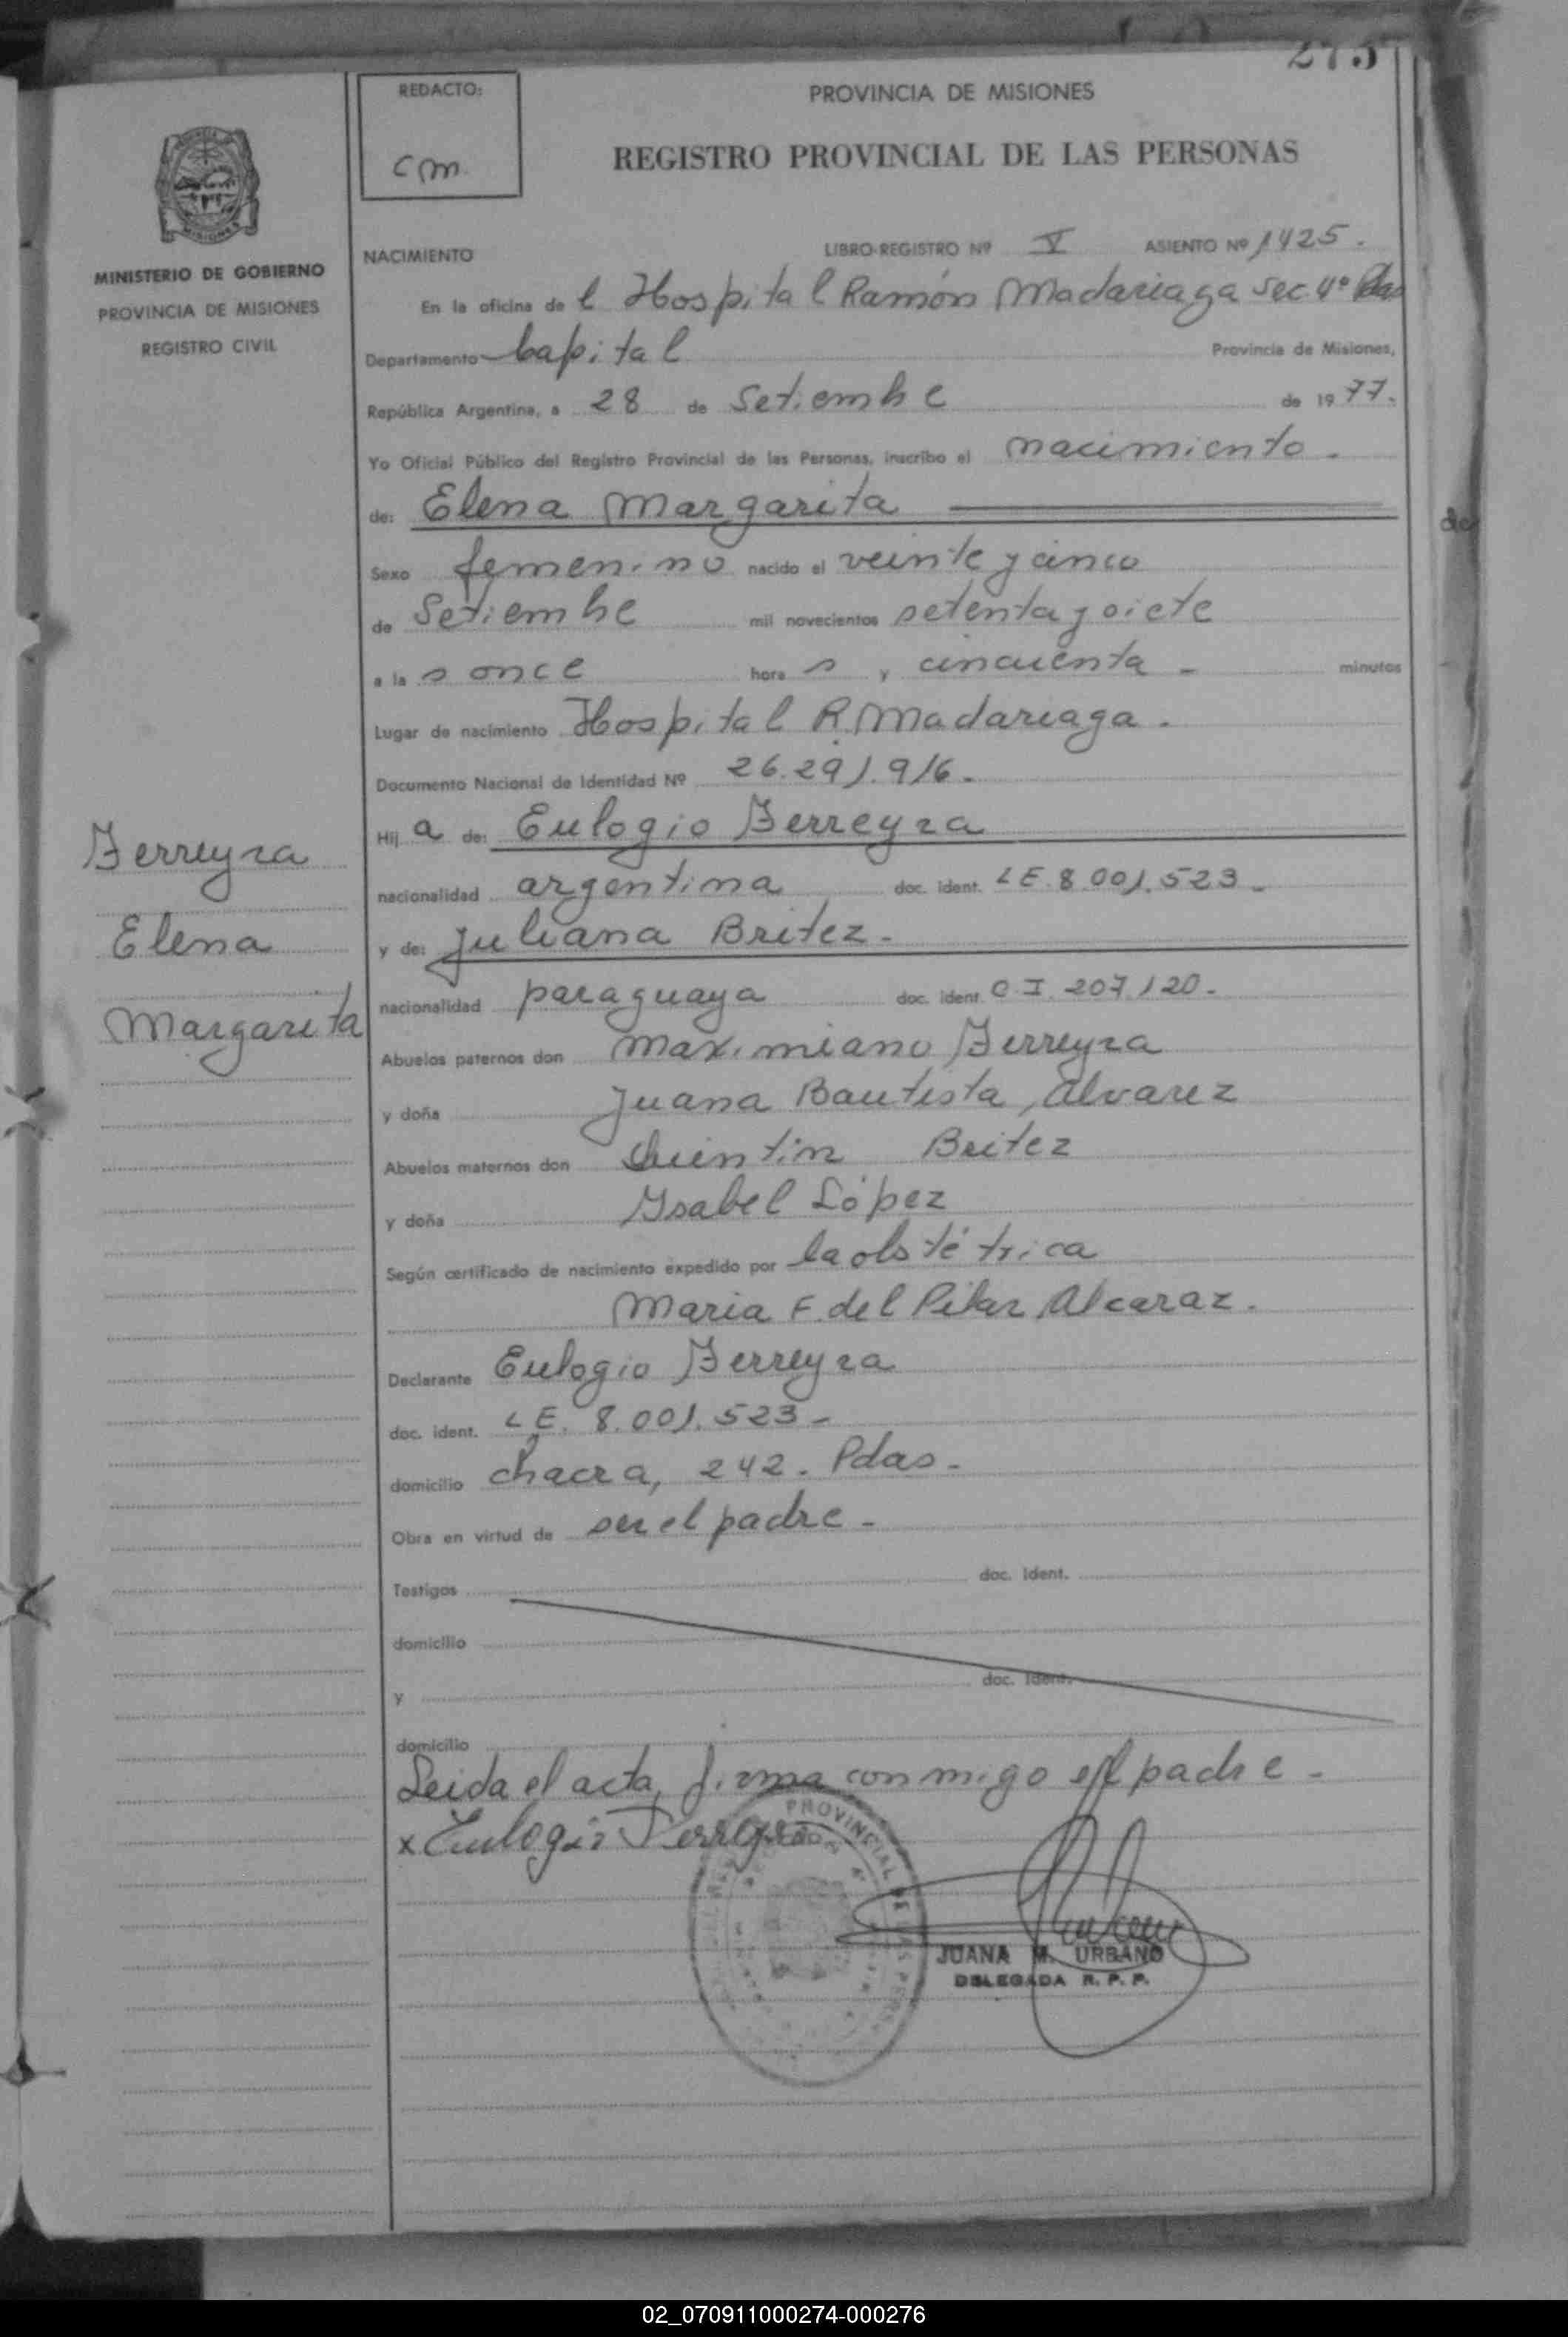 275
REDACTO:
cm.
PROVINCIA DE MISIONES
REGISTRO PROVINCIAL DE LAS PERSONAS
MINISTERIO DE GOBIERNO
PROVINCIA DE MISIONES
REGISTRO CIVIL
NACIMIENTO LIBRO-REGISTRO Nº V ASIENTO Nº 1425.
En la oficina de l Hospital Ramón Madariaga sec. 4º Pdas
Departamento Capital Provincia de Misiones,
República Argentina, a 28 de Setiembre de 1977.
Yo Oficial Público del Registro Provincial de las Personas, inscribo el nacimiento.
de: Elena Margarita
de
Sexo femenino nacido el veinte y cinco
de Setiembre mil novecientos setenta y siete
a la s once hora s y cincuenta - minutos
Lugar de nacimiento Hospital R. Madariaga.
Documento Nacional de Identidad Nº 26.291.916.
Hij a de: Eulogio Ferreyra
nacionalidad argentina doc. ident. LE. 8.001.523-
y de: Juliana Britez.
nacionalidad paraguaya doc. ident. C I. 207.120.
Ferreyra
Elena
Margarita
Abuelos paternos don Maximiano Ferreyra
y doña Juana Bautista Alvarez
Abuelos maternos don Quintin Britez
y doña Ysabel López
Según certificado de nacimiento expedido por la obstétrica
Maria F. del Pilar Alcaraz.
Declarante Eulogio Ferreyra
doc. ident. L E. 8.001.523-
domicilio chacra, 242. Pdas.
Obra en virtud de ser el padre -
Testigos doc. Ident.
domicilio
y doc. Ident.
domicilio
Leida el acta, firma conmigo el padre -
x Eulogio Ferreyra
PROVINCIAL DE LAS PERS
JUANA M. URBANO
DELEGADA R. P. P.
02_070911000274-000276